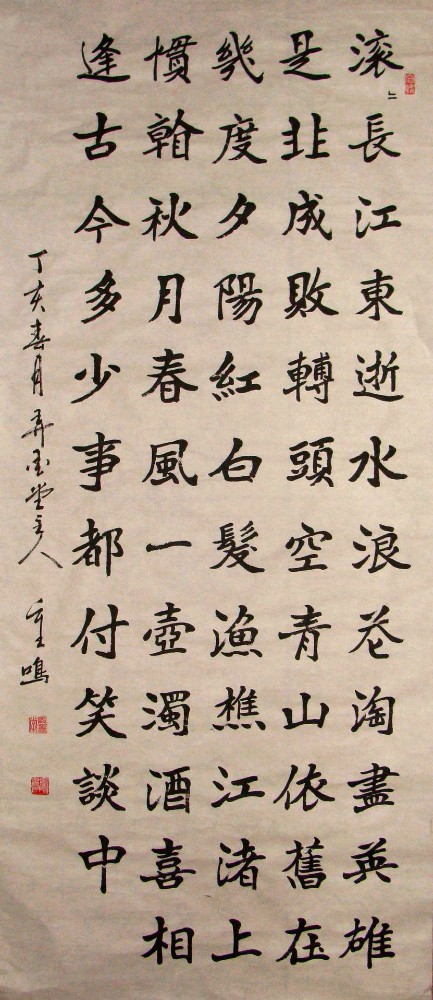 滚〻長江東逝水浪花淘盡英雄
是非成敗轉頭空青山依舊在
幾度夕陽紅白髮漁樵江渚上
慣看秋月春風一壺濁酒喜相
逢古今多少事都付笑談中
丁亥春月弄墨堂主人重鳴